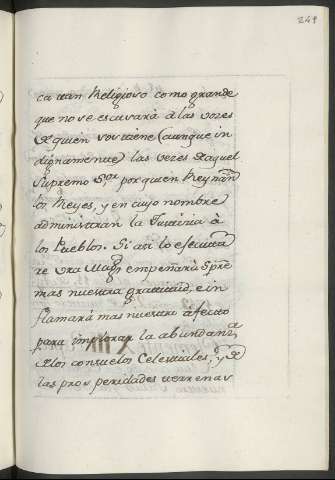 249
ca tan Religioso como grande
que no se escusará á las voces
de quien sostiene (aunque in
dignamente) las veces de aquel
Supremo S.or por quien Reynan
los Reyes, y en cuyo nombre
administran la Justicia à
los Pueblos. Si asi lo executa
re Vra Mag.d empeñará spre
mas nuestra gratitud, e in
flamará mas nuestro afecto
para implorar la abundan.a
de los consuelos Celestiales, y de
las prosperidades terrenas